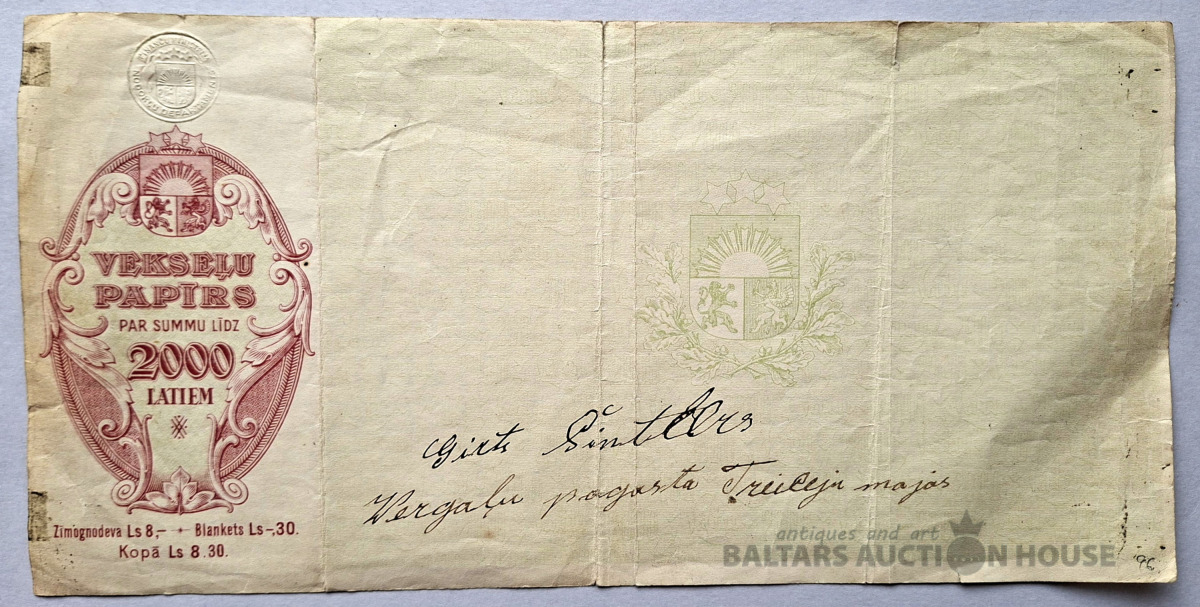 VEKSEĻU
PAPĪRS
PAR SUMMU LĪDZ
2000
LATIEM
Zīmognodeva Ls 8,– + Blankets Ls –,30.
Kopā Ls 8.30.
Girts Šintlers
Vergaļu pagasta Treileju majas
antiques and art
BALTARS AUCTION HOUSE
96